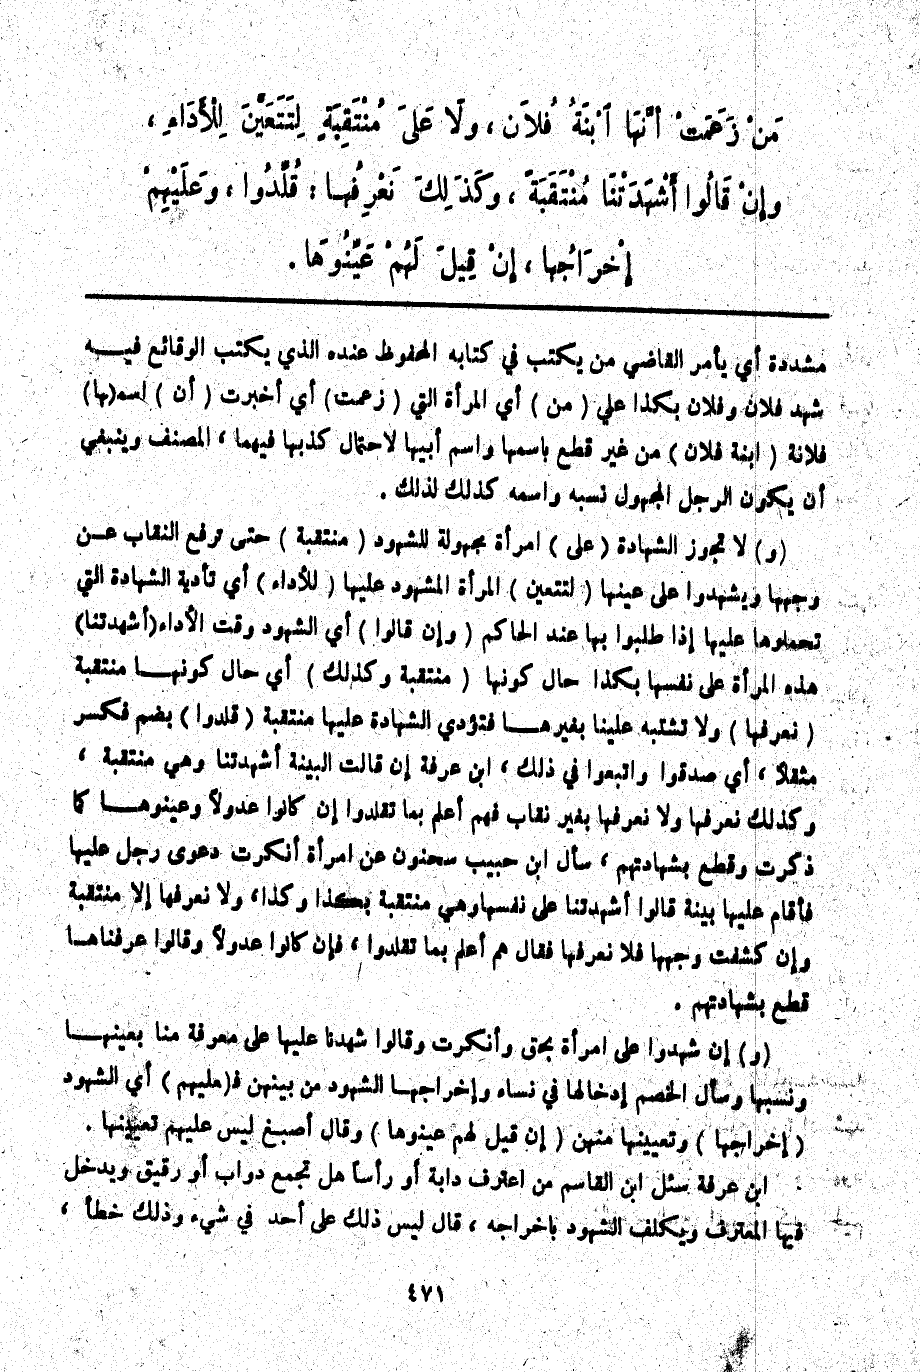 مَنْ زَعَمَتْ أَنَّهَا ٱبْنَةُ فُلاَنٍ ، ولَا عَلىَ مُنْتَقِبَةٍ لِتَتَعَيَّنَ لِلْأَدَاءِ ،
وإِنْ قَالُوا أَشْهَدَتْنَا مُنْتَقِبَةً ، وكَذَلِكَ نَعْرِفُهـا : قُلِّدُوا ، وعَلَيْهِمْ
إِخْرَاجُها ، إِنْ قِيلَ لَهُمْ عَيِّنُوهَا .
مشددة أي يأمر القاضي من يكتب في كتابه المحفوظ عنده الذي يكتب الوقائع فيـــه
شهد فلان وفلان بكذا علي ( من ) أي المرأة التي ( زعمت ) أي أخبرت ( أن ) اسم(ها)
فلانة ( ابنة فلان ) من غير قطع باسمها واسم أبيها لاحتمال كذبها فيهما ، المصنف وينبغي
أن يكون الرجل المجهول نسبه واسمه كذلك لذلك .
(و) لا تجوز الشهادة ( على ) امرأة مجهولة للشهود ( منتقبة ) حتى ترفع النقاب عــن
وجهها ويشهدوا على عينها ( لتتعين ) المرأة المشهود عليها ( للأداء ) أي تأدية الشهادة التي
تحملوها عليها إذا طلبوا بها عند الحاكم ( وإن قالوا ) أي الشهود وقت الأداء(أشهدتنا)
هذه المرأة على نفسها بكذا حال كونها ( منتقبة وكذلك ) أي حال كونهـــا منتقبة
( نعرفها ) ولا تشتبه علينا بغيرهـــا فتؤدي الشهادة عليها منتقبة ( قلدوا ) بضم فكسر
مثقلاً ، أي صدقوا واتبعوا في ذلك ، ابن عرفة إن قالت البينة أشهدتنا وهي منتقبة ،
وكذلك نعرفها ولا نعرفها بغير نقاب فهم أعلم بما تقلدوا إن كانوا عدولاً وعينوهـــا كما
ذكرت وقطع بشهادتهم ، سأل ابن حبيب سحنون عن امرأة أنكرت دعوى رجل عليها
فأقام عليها بينة قالوا أشهدتنا على نفسهاوهي منتقبة بكذا وكذا، ولا نعرفها إلا منتقبة
وإن كشفت وجهها فلا نعرفها فقال هم أعلم بما تقلدوا ، فإن كانوا عدولاً وقالوا عرفناهـا
قطع بشهادتهم .
(و) إن شهدوا على امرأة بحق وأنكرت وقالوا شهدنا عليها على معرفة منا بعينهـــا
ونسبها وسأل الخصم إدخالها في نساء وإخراجهـا الشهود من بينهن ف(عليهم ) أي الشهود
( إخراجها ) وتعيينها منهن ( إن قيل لهم عينوها ) وقال أصبغ ليس عليهم تعيينها .
ابن عرفة سئل ابن القاسم من اعترف دابة أو رأساً هل تجمع دواب أو رقيق ويدخل
فيها المعترف ويكلف الشهود بإخراجه ، قال ليس ذلك على أحد في شيء وذلك خطأ ،
٤٧١